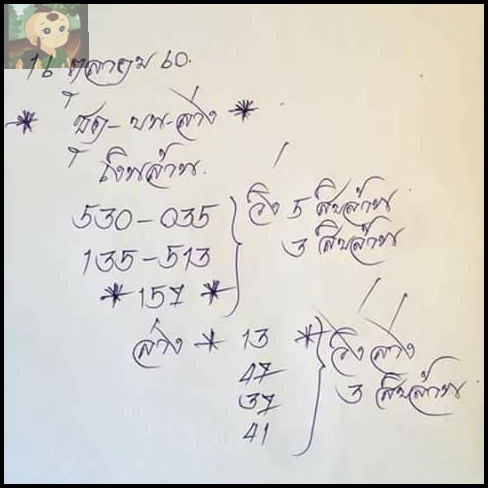 16 ตุลาคม 60.
* ชุด-บน-ล่าง *
เงินล้าน.
530-035 วิ่ง 5 สิบล้าน
135-513 3 สิบล้าน
* 157 *
ล่าง * 13 * วิ่งล่าง
47 3 สิบล้าน
37
41